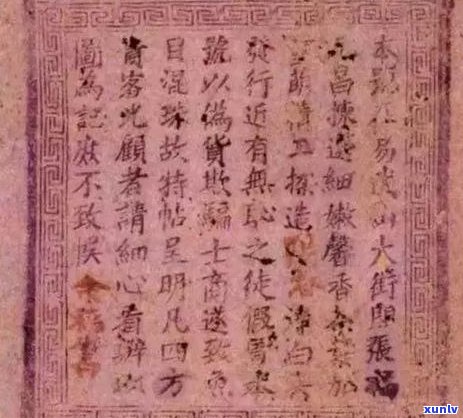 本號在易武山大街開張福
元昌揀選細嫩馨香茶葉加
工揉造白尖
發行近有無恥之徒假冒本
號以偽貨欺騙士商遂致魚
目混珠故特帖呈明凡四方
貴客光顧者請細心看辨以
圖為記庶不致悞 余福生
xunlv